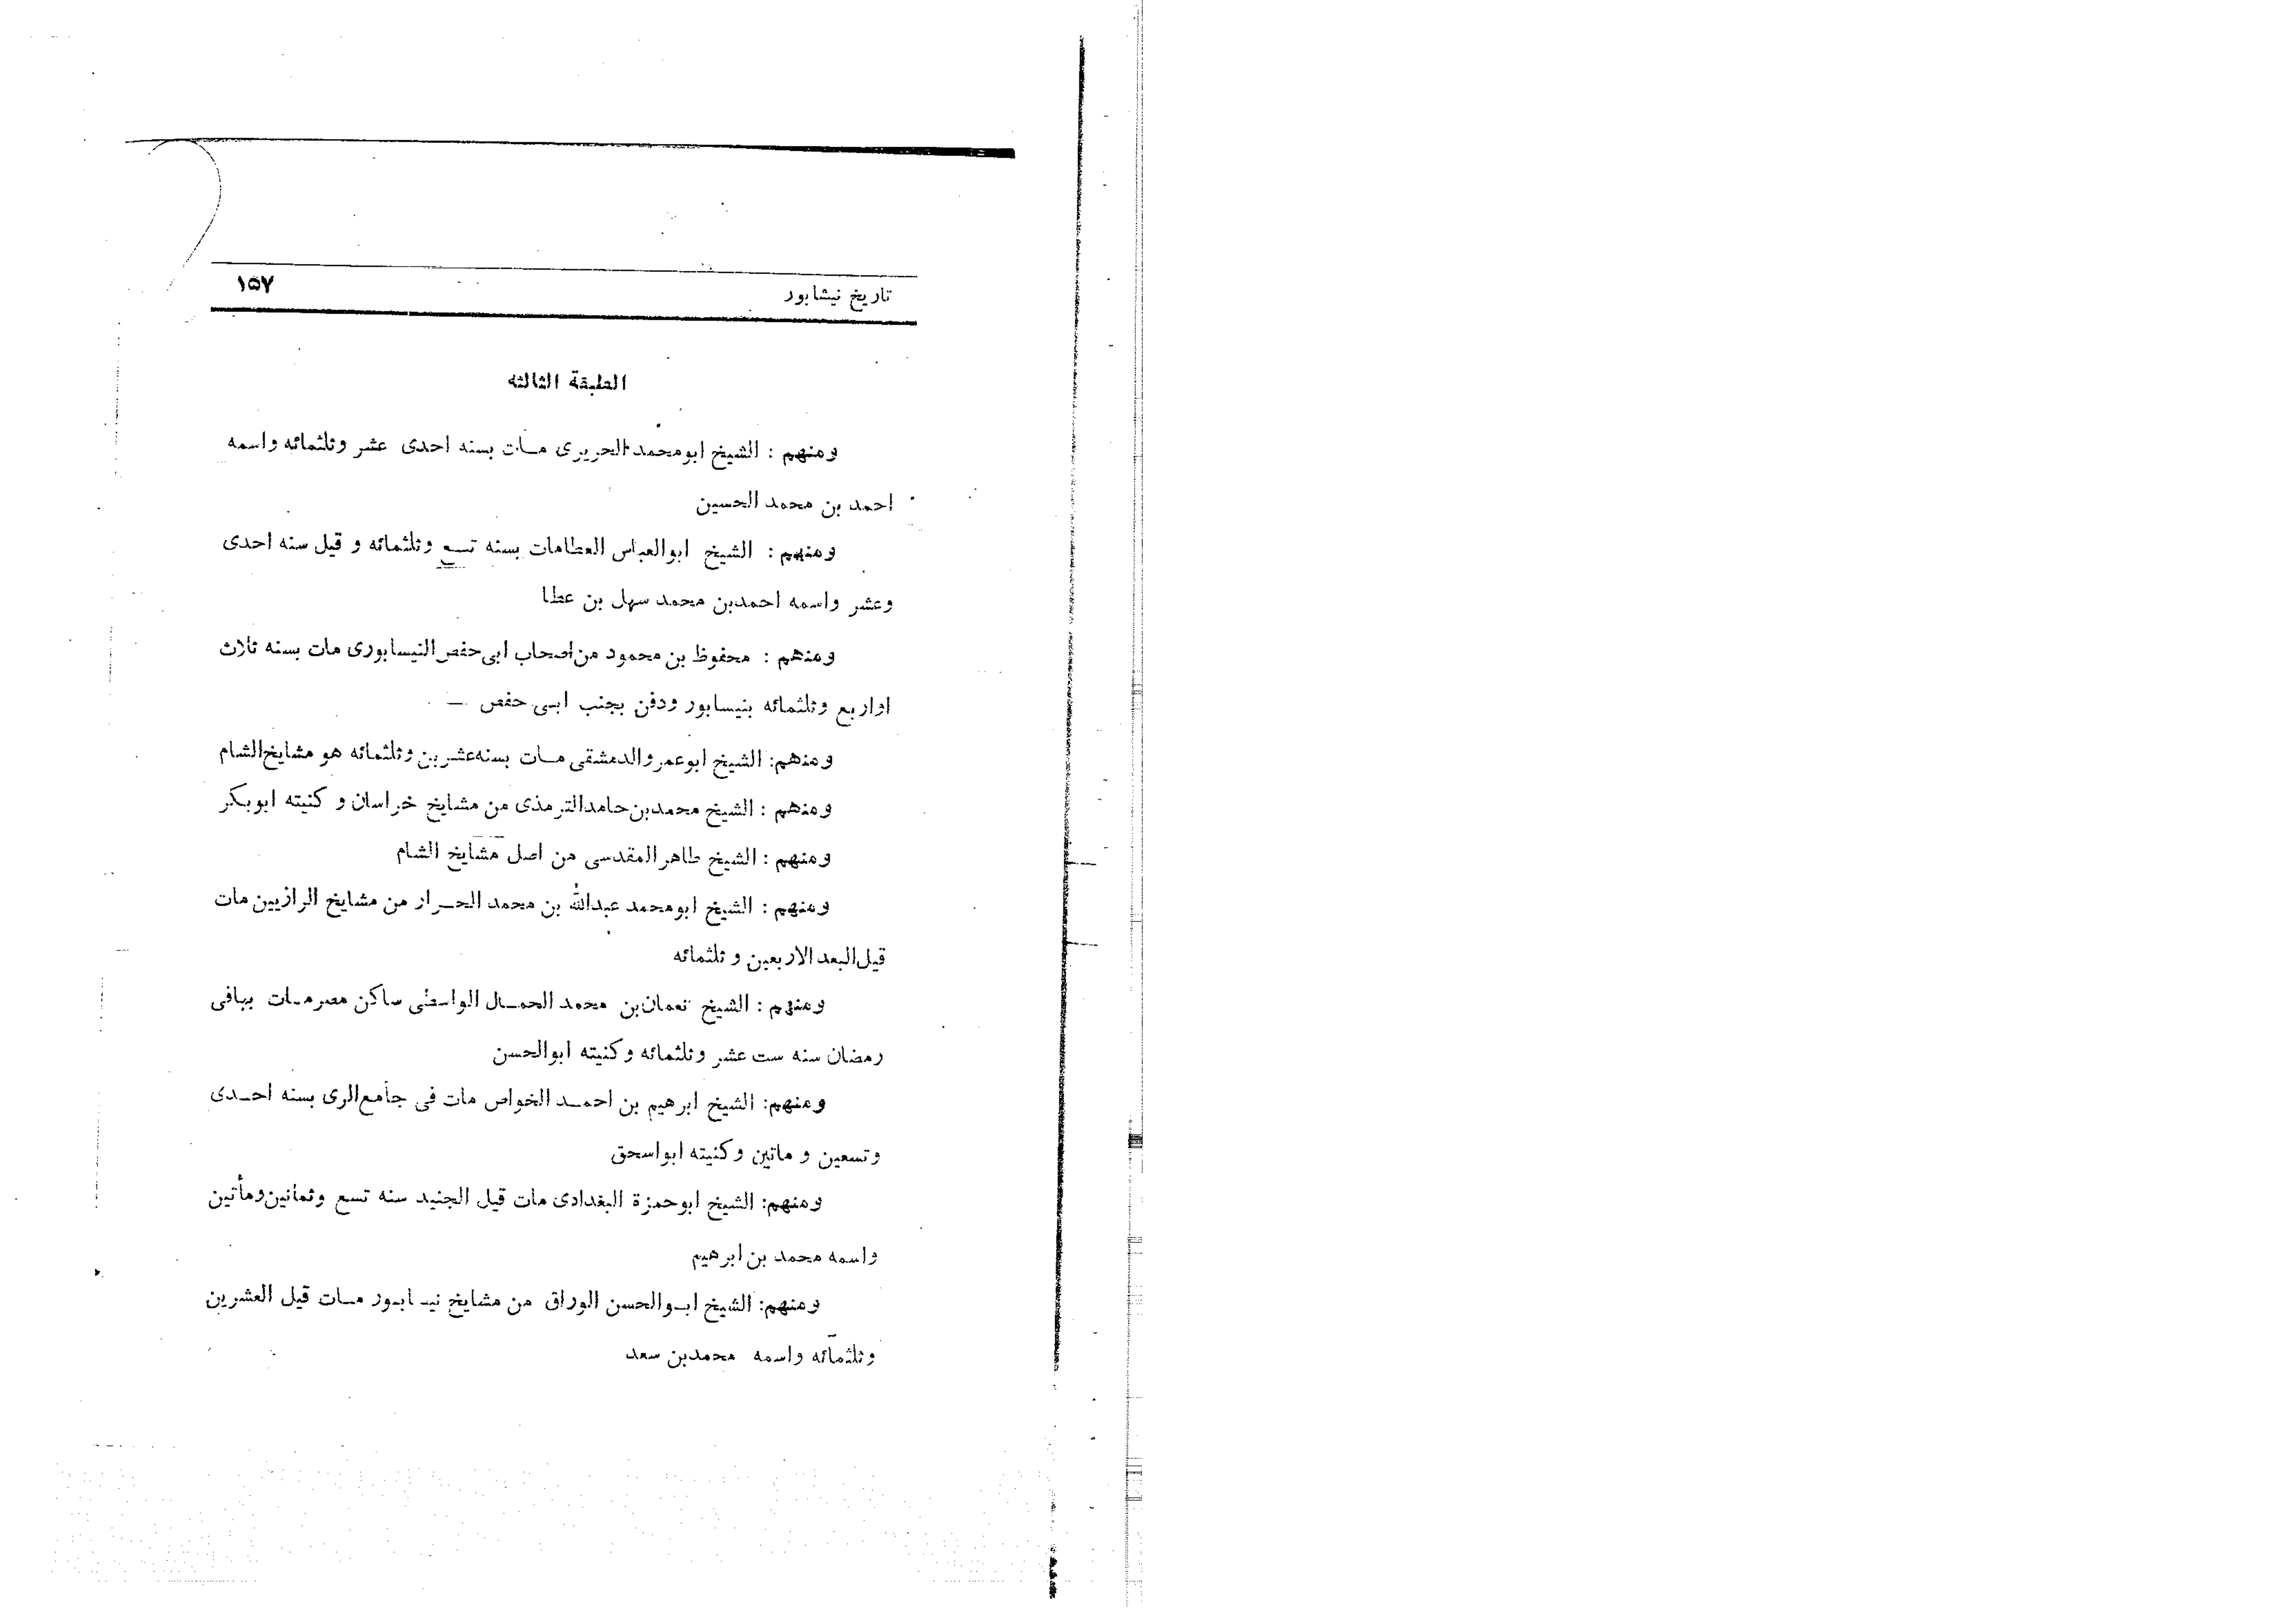 تاریخ نیشابور ۱۵۷
الطبقة الثالثه
ومنهم : الشیخ ابومحمد الحریری مات بسنه احدی عشر وثلثمائه واسمه
احمد بن محمد الحسین
ومنهم : الشیخ ابوالعباس العطامات بسنه تسع وثلثمائه و قیل سنه احدی
وعشر واسمه احمدبن محمد سهل بن عطا
ومنهم : محفوظ بن محمود من اصحاب ابی حفص النیسابوری مات بسنه ثلاث
اواربع وثلثمائه بنیسابور ودفن بجنب ابی حفص
ومنهم: الشیخ ابوعمروالدمشقی مات بسنه عشرین وثلثمائه هو مشایخ الشام
ومنهم : الشیخ محمدبن حامدالترمذی من مشایخ خراسان و کنیته ابوبکر
ومنهم : الشیخ طاهرالمقدسی من اصل مشایخ الشام
ومنهم : الشیخ ابومحمد عبدالله بن محمد الحرار من مشایخ الرازیین مات
قیل البعد الاربعین و ثلثمائه
ومنهم : الشیخ نعمان بن محمد الحمال الواسطی ساکن مصرمات بهافی
رمضان سنه ست عشر وثلثمائه وکنیته ابوالحسن
ومنهم: الشیخ ابرهیم بن احمد الخواص مات فی جامع الری بسنه احدی
وتسعین و ماتین وکنیته ابواسحق
ومنهم: الشیخ ابوحمزة البغدادی مات قیل الجنید سنه تسع وثمانین ومأتین
واسمه محمد بن ابرهیم
ومنهم: الشیخ ابوالحسن الوراق من مشایخ نیـ ابور مات قیل العشرین
وثلثمائه واسمه محمدبن سعد